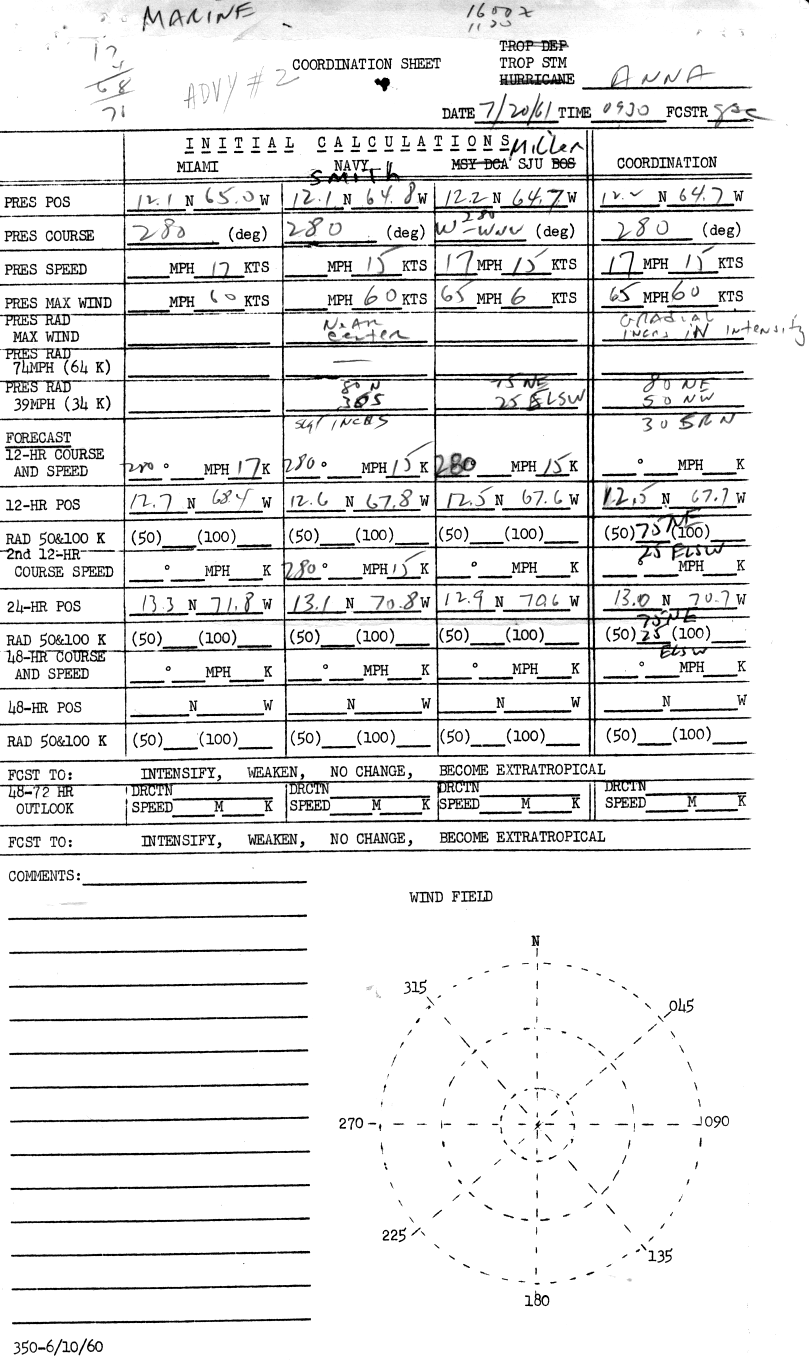 MARINE
1600z
ADVY # 2
COORDINATION SHEET
TROP DEP
TROP STM
HURRICANE ANNA
DATE 7/20/61 TIME 0930 FCSTR
INITIAL CALCULATIONS Miller
MIAMI NAVY MSY DCA SJU BOS COORDINATION
Smith
PRES POS 12.1 N 65.0 W 12.1 N 64.8 W 12.2 N 64.7 W 12.2 N 64.7 W
PRES COURSE 280 (deg) 280 (deg) W-WNW 280 (deg) 280 (deg)
PRES SPEED MPH 17 KTS MPH 15 KTS 17 MPH 15 KTS 17 MPH 15 KTS
PRES MAX WIND MPH 60 KTS MPH 60 KTS 65 MPH 6 KTS 65 MPH 60 KTS
PRES RAD
MAX WIND Near center Gradial incrs in intensity
PRES RAD
74MPH (64 K) —
PRES RAD 80 N 75 NE 80 NE
39MPH (34 K) 30 S 25 ELSW 50 NW
SGT INCRS 30 SRN
FORECAST
12-HR COURSE
AND SPEED 280 ° MPH 17 K 280 ° MPH 15 K 280 MPH 15 K ° MPH K
12-HR POS 12.7 N 68.4 W 12.6 N 67.8 W 12.5 N 67.6 W 12.5 N 67.7 W
RAD 50&100 K (50) (100) (50) (100) (50) (100) (50) 75 NE (100)
2nd 12-HR 25 ELSW
COURSE SPEED ° MPH K 280 ° MPH 15 K ° MPH K ° MPH K
24-HR POS 13.3 N 71.8 W 13.1 N 70.8 W 12.9 N 70.6 W 13.0 N 70.7 W
75 NE
RAD 50&100 K (50) (100) (50) (100) (50) (100) (50) 25 (100)
48-HR COURSE ELSW
AND SPEED ° MPH K ° MPH K ° MPH K ° MPH K
48-HR POS N W N W N W N W
RAD 50&100 K (50) (100) (50) (100) (50) (100) (50) (100)
FCST TO: INTENSIFY, WEAKEN, NO CHANGE, BECOME EXTRATROPICAL
48-72 HR DRCTN DRCTN DRCTN DRCTN
OUTLOOK SPEED M K SPEED M K SPEED M K SPEED M K
FCST TO: INTENSIFY, WEAKEN, NO CHANGE, BECOME EXTRATROPICAL
COMMENTS:
WIND FIELD
N
315
045
270
090
225
135
180
350-6/10/60